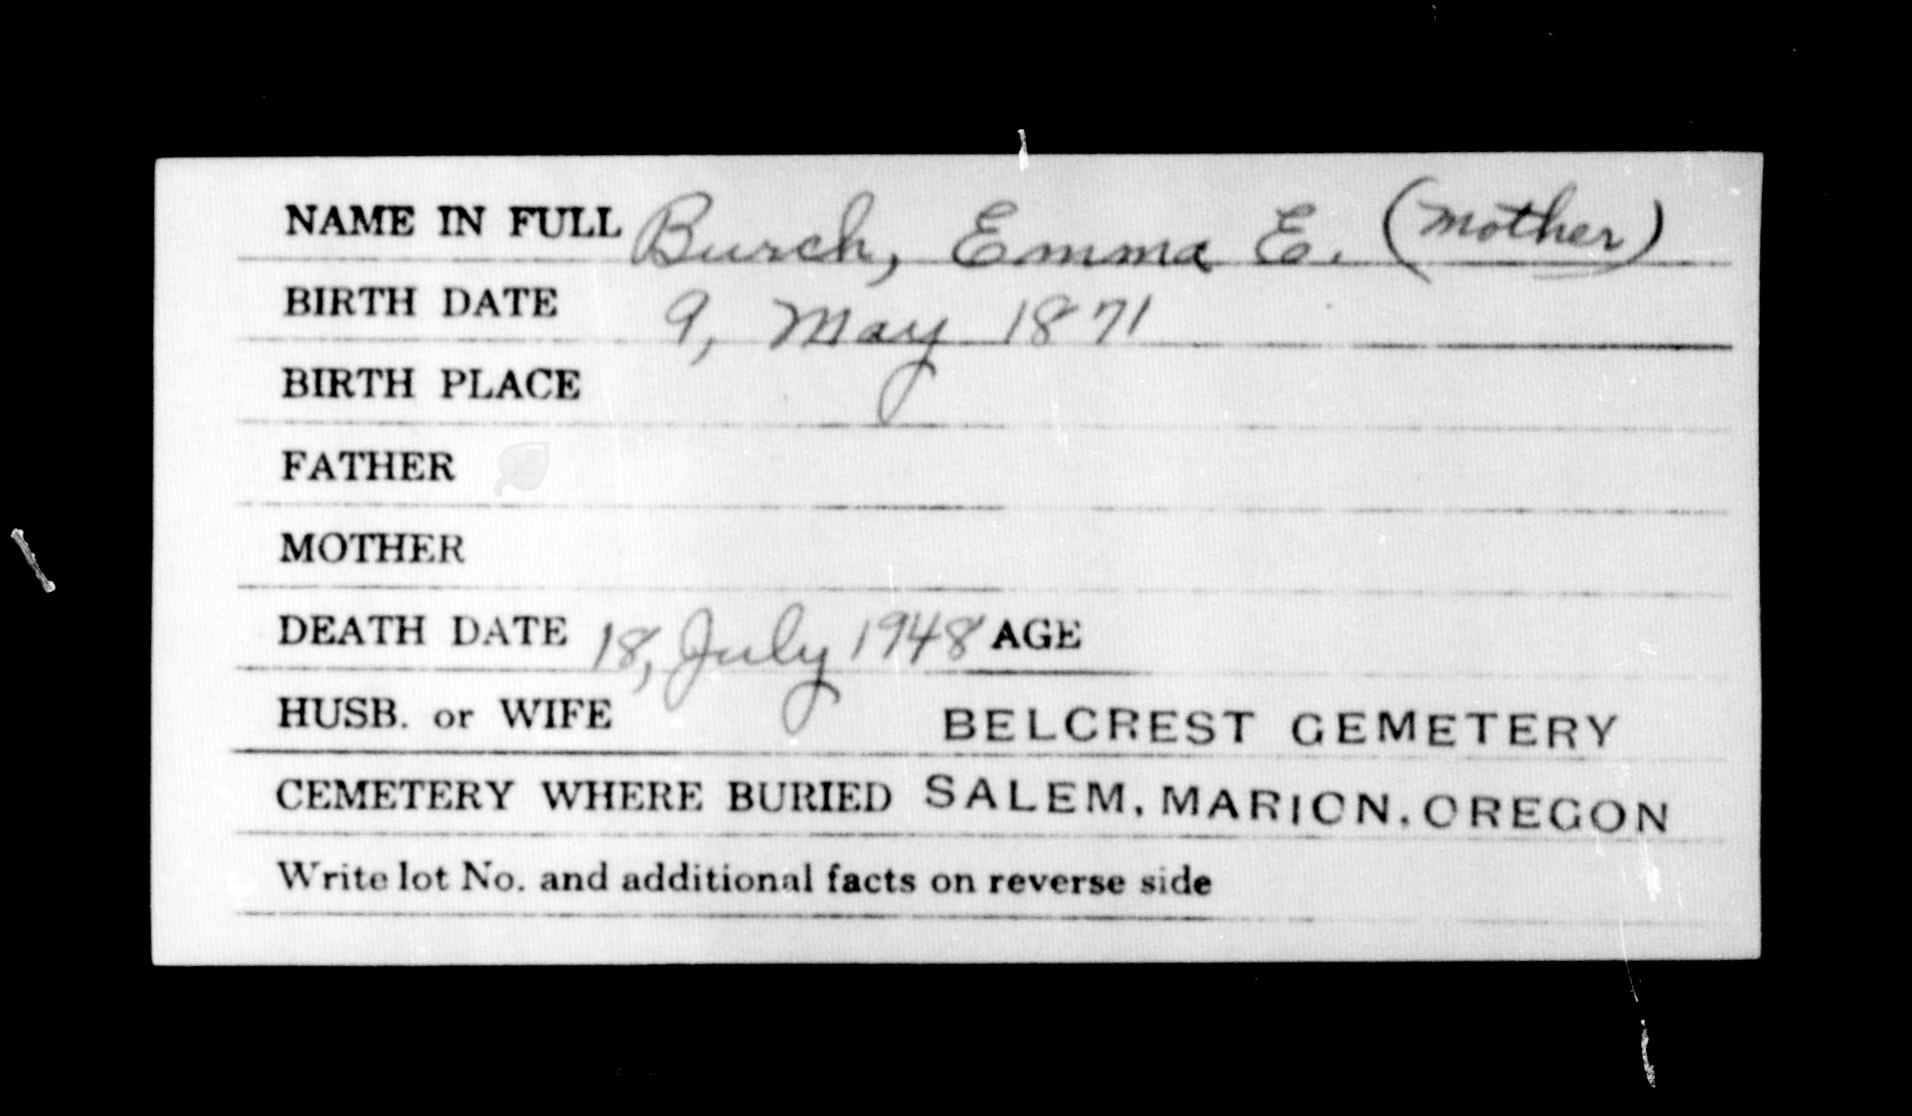 NAME IN FULL Burch, Emma E. (Mother)
BIRTH DATE 9, May 1871
BIRTH PLACE
FATHER
MOTHER
DEATH DATE 18, July 1948 AGE
HUSB. or WIFE BELCREST CEMETERY
CEMETERY WHERE BURIED SALEM, MARION, OREGON
Write lot No. and additional facts on reverse side